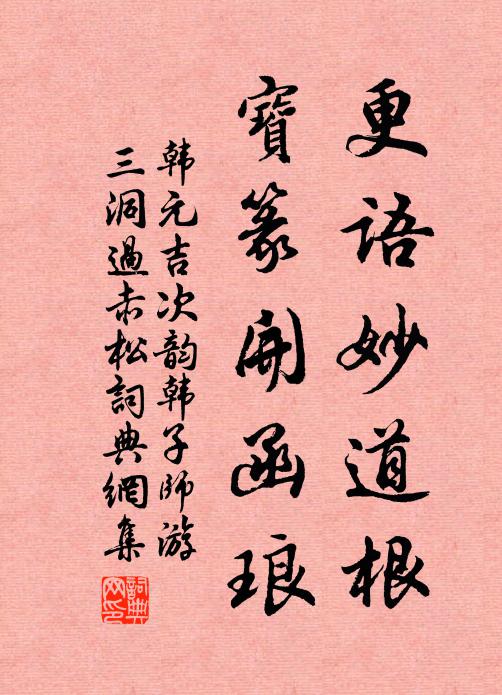 更語妙道根
寶篆開函琅
韩元吉次韵韩子师游
三洞過赤松詞典網集
詞典